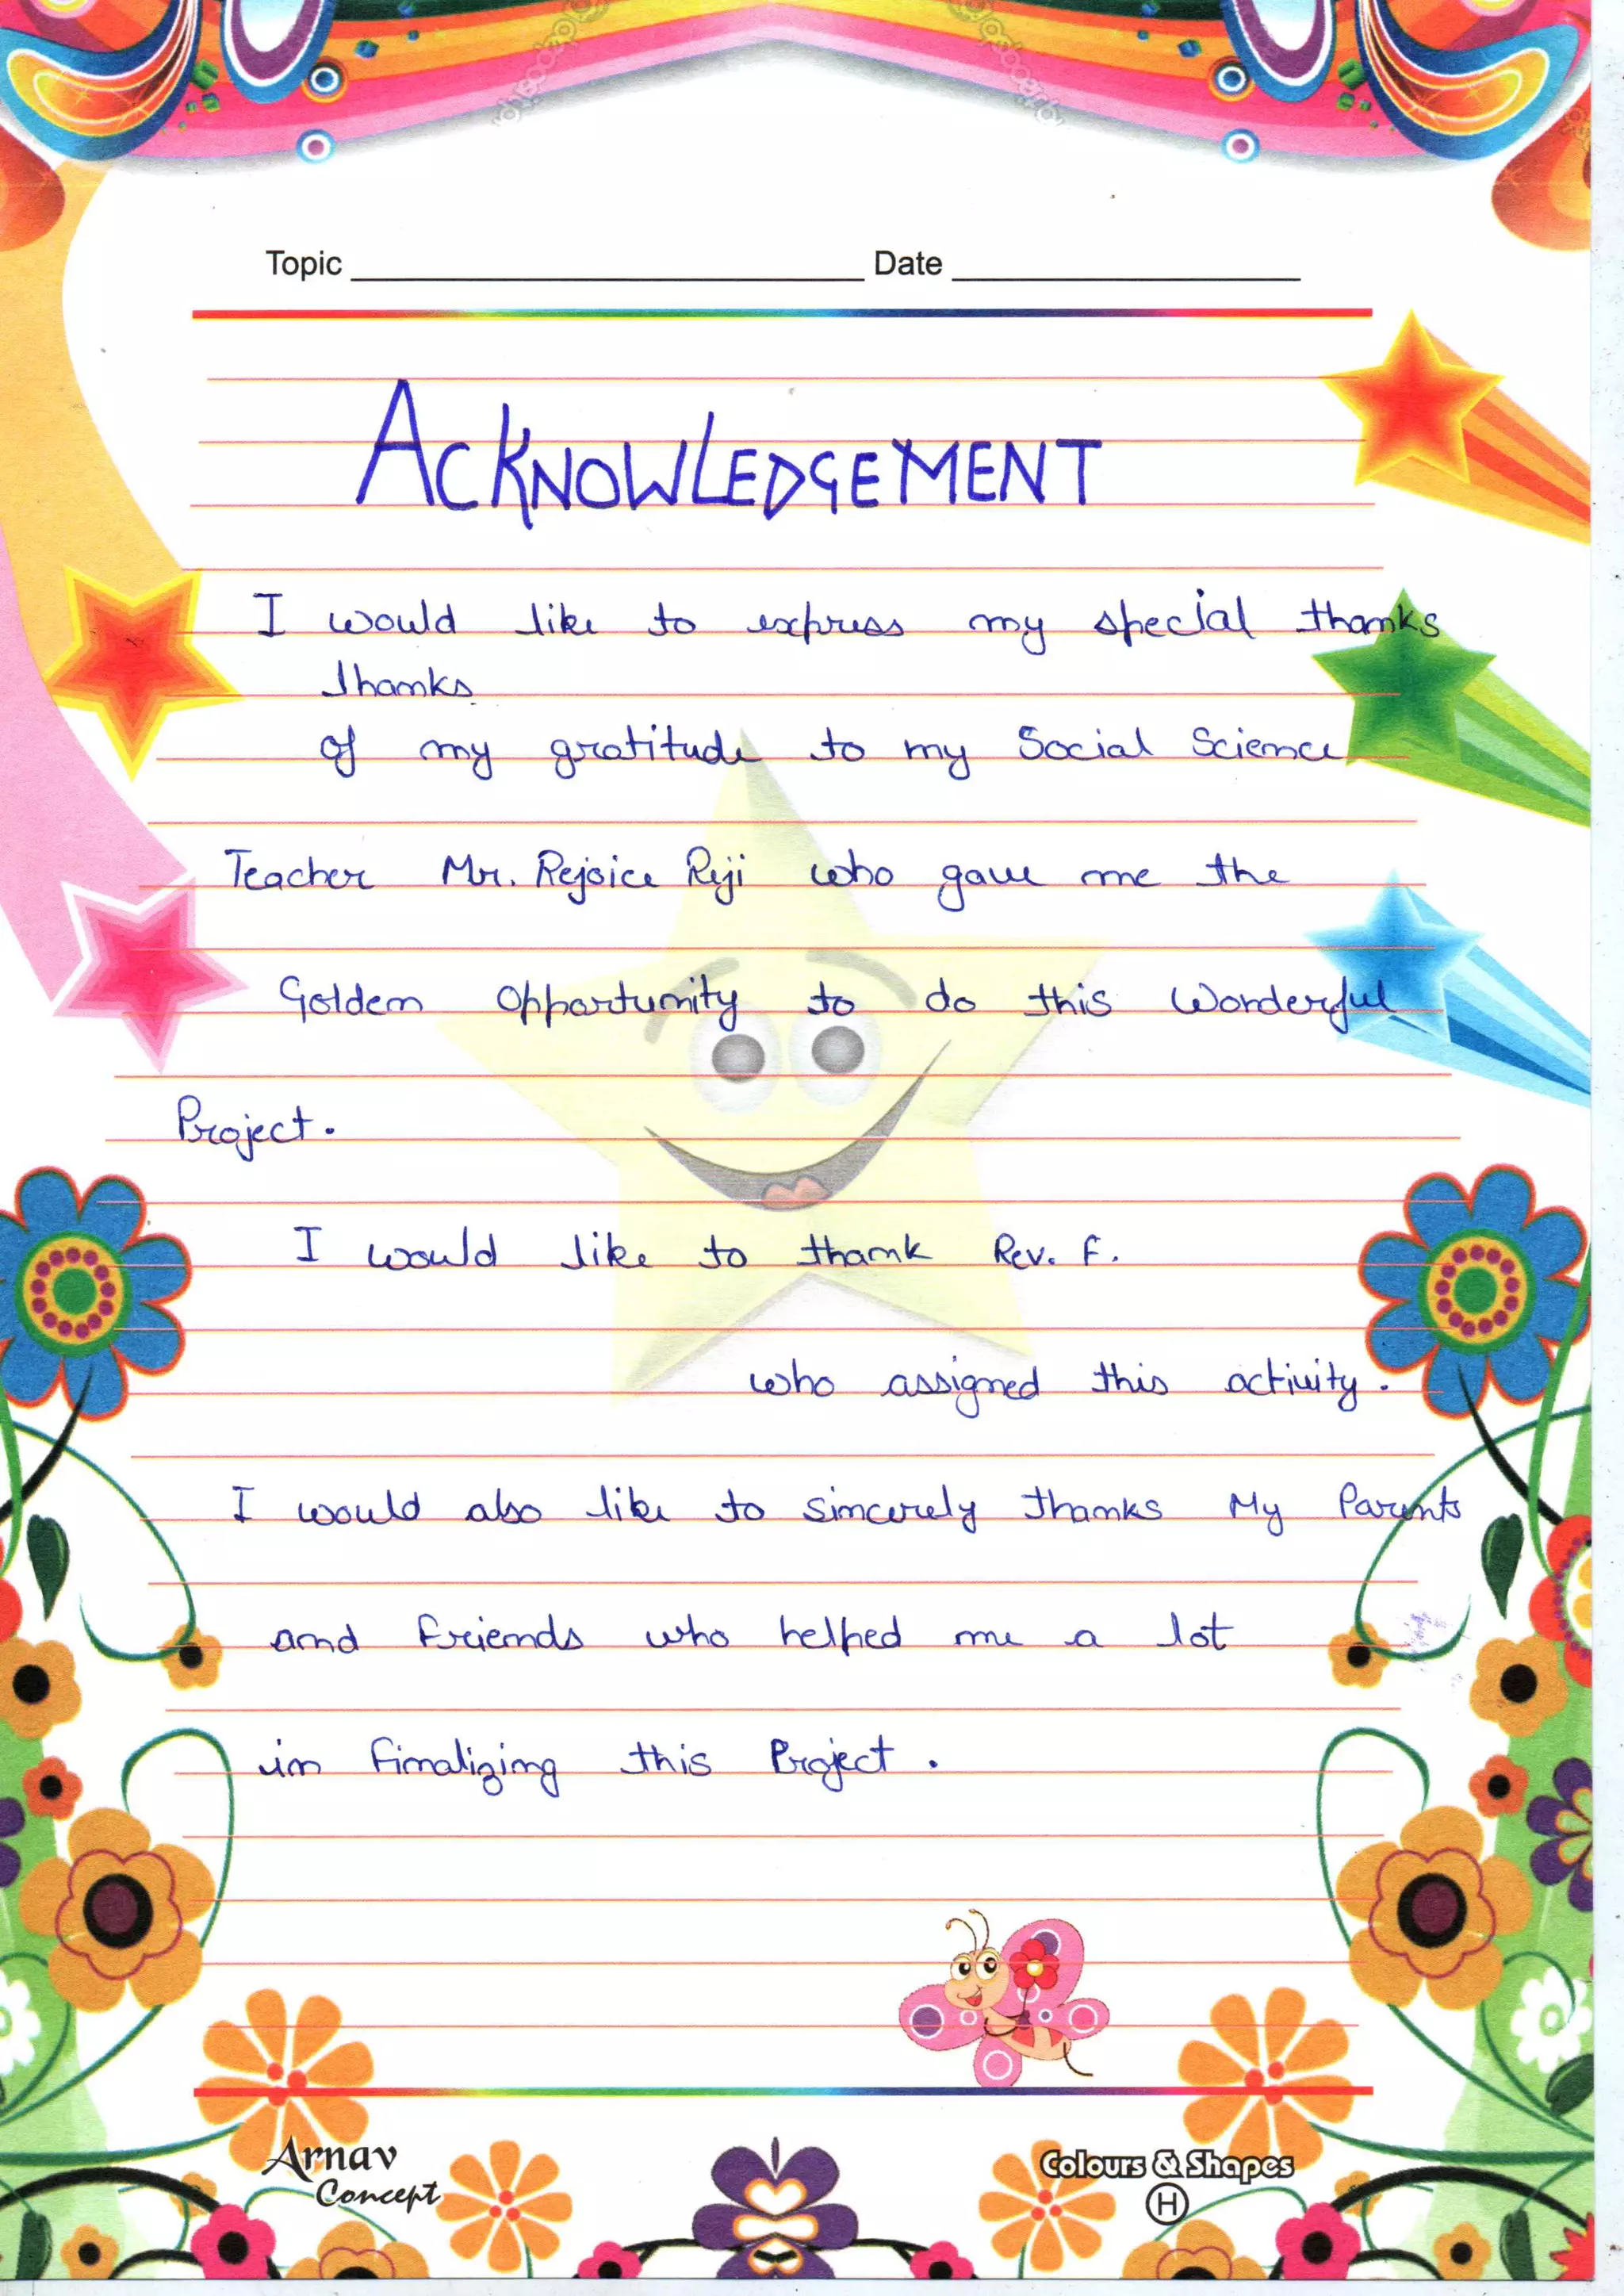 Topic Date
ACKNOWLEDGEMENT
I would like to express my special thanks
thanks
of my gratitude to my Social Science
Teacher Mr. Rejoice Reji who gave me the
Golden Opportunity to do this Wonderful
Project.
I would like to thank Rev. F.
who assigned this activity.
I would also like to sincerely thanks My Parents
and Friends who helped me a lot
in Finalizing this Project.
Arnav
Concept
Colours & Shapes
H